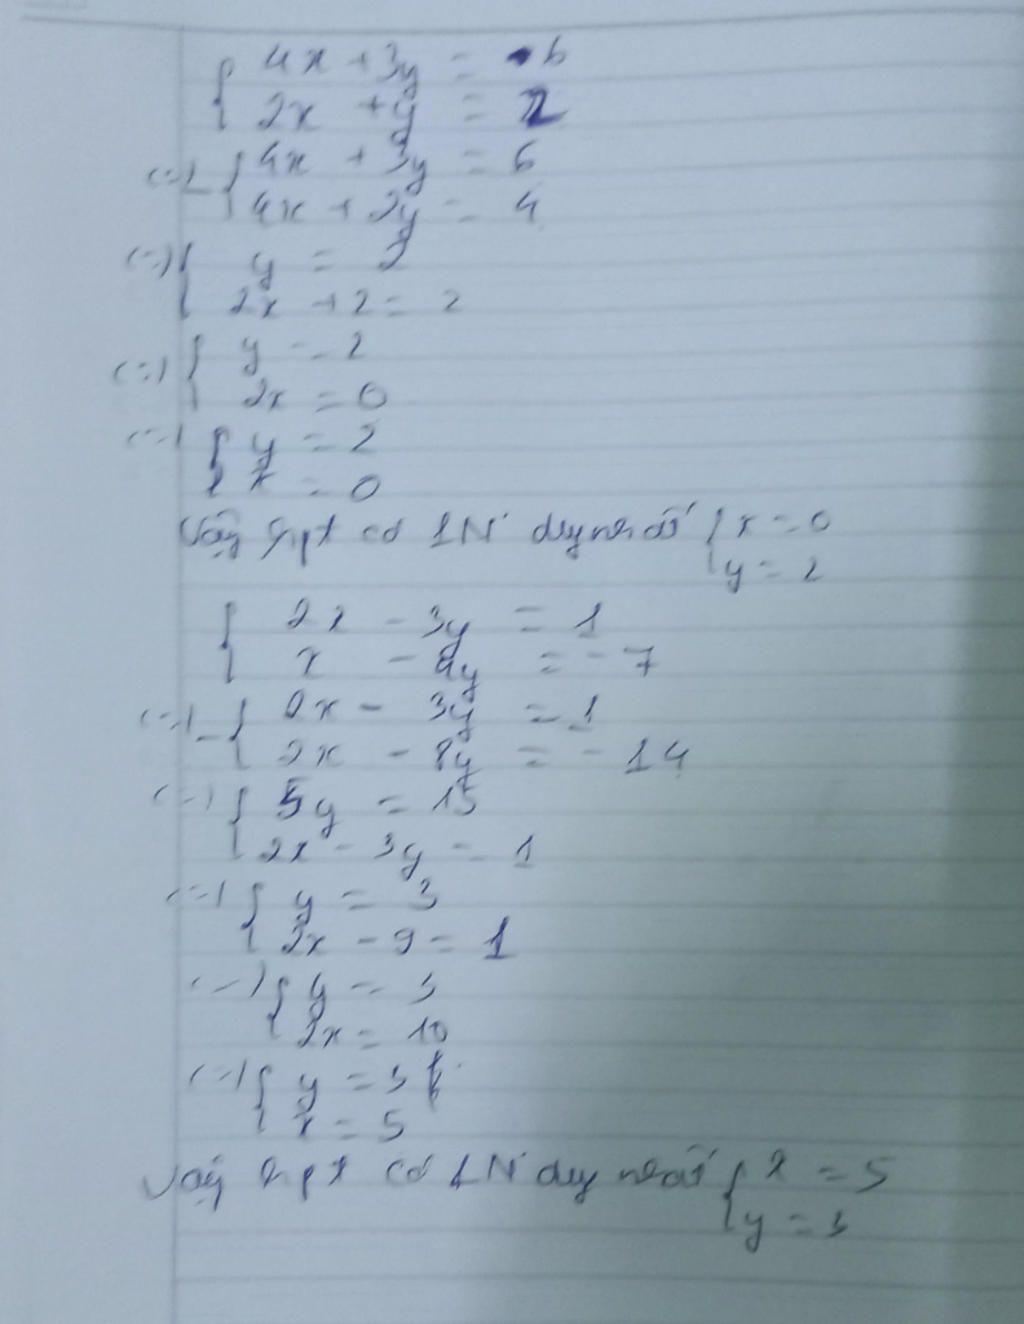 { 4x + 3y = 6
2x + y = 2
(=) - { 4x + 3y = 6
4x + 2y = 4
(=) { y = 2
2x + 2 = 2
(=) { y = 2
2x = 0
(=) { y = 2
x = 0
Vậy hpt có 1N duy nhất { x = 0
y = 2
{ 2x - 3y = 1
x - 4y = -7
(=) - { 2x - 3y = 1
2x - 8y = -14
(=) { 5y = 15
2x - 3y = 1
(=) { y = 3
2x - 9 = 1
(=) { y = 3
2x = 10
(=) { y = 3
x = 5
Vậy hpt có 1N duy nhất { x = 5
y = 3